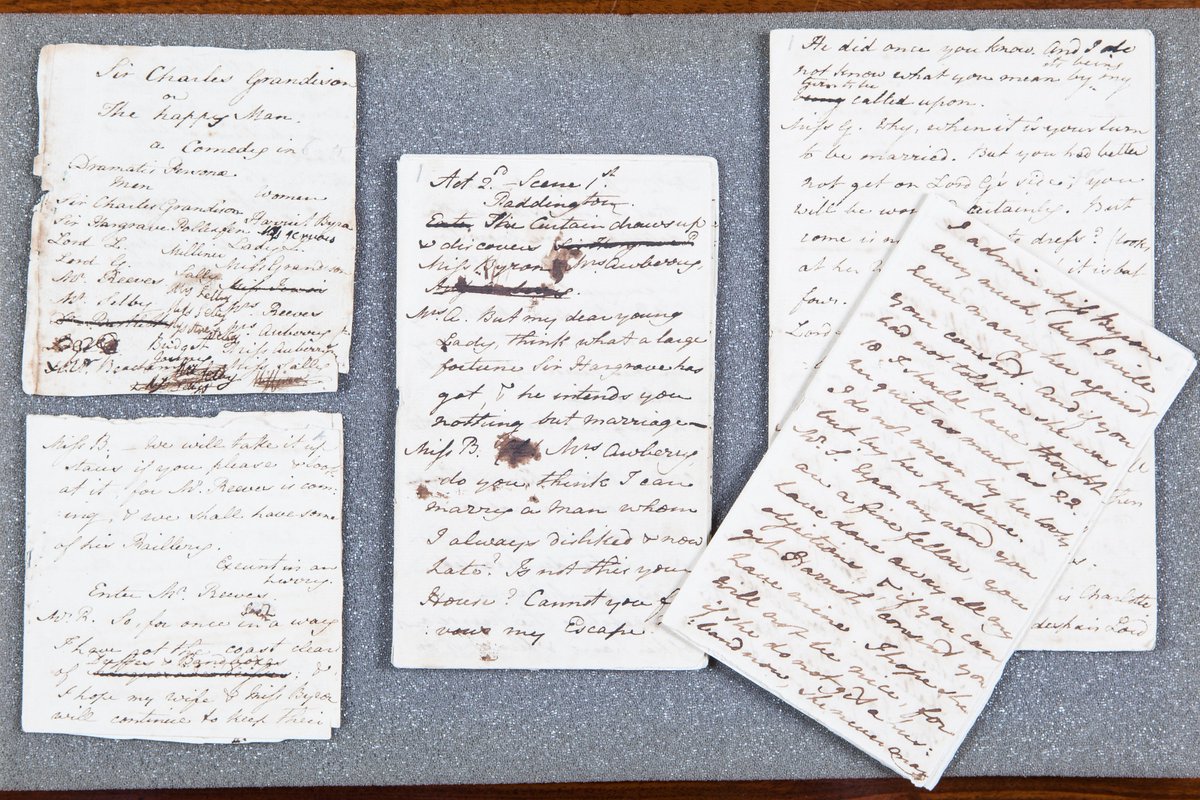 Sir Charles Grandison
or
The happy Man.
a Comedy in
Dramatis Personæ
Men
Women
Sir Charles Grandison
Harriet Byron
Sir Hargrave Pollexfen
Lord L.
Milliner
Lady L.
Lord G.
Sally
Miss Grandison
Mr. Reeves
Mrs. Reeves
Mr. Selby
Mrs. Awberry
Bridget
Miss Awberry
Miss Sally
Miss B. We will take it up
stairs if you please & look
at it; for Mr. Reeves is com:
:ing, & we shall have some
of his Raillery.
Exeunt in an
hurry.
Enter Mr. Reeves.
Mr. R. So for once in a way
I have got the coast clear
of Dyster & Bandboxes. &
I hope my wife & Miss Byron
will continue to keep their
1
Act 2d. Scene 1st.
Paddington.
Enter The Curtain draws up
& discovers
Miss Byron & Mrs. Awberry
Mrs. A. But my dear young
Lady, think what a large
fortune Sir Hargrave has
got, & he intends you
nothing but marriage—
Miss B. Mrs. Awberry
do you think I can
marry a man whom
I always disliked & now
hate? Is not this your
House? Cannot you f
:vour my Escape
1
He did once you know. And I do
not know what you mean by my
it being
turn to be
called upon.
Miss G. Why, when it is your turn
to be married. But you had better
not get on Lord G's side; you
will be certainly. But
come is to dress? (looks
at her it is but
four.
Lord
then
is Charlotte
Lord
I admire Miss Byron
very much, but I will
never marry her against
your consent. And if you
had not told me she was
18, I should have thought
her quite as much as 22
but by her prudence.
I do not mean by her looks.
Mr. S. Upon my word you
are a fine fellow, you
have done away all my
objections, & if you can
get Harriet's consent you
have mine. I hope she
will not be nice, for
if she do not get a hus:
:band now, she never may